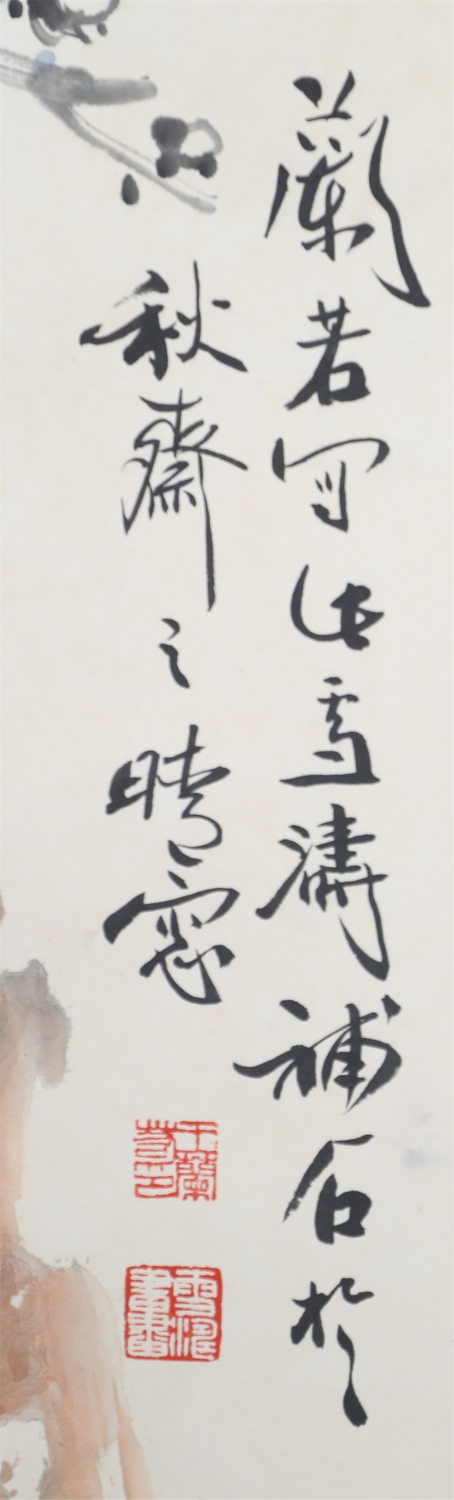 蘭若写此雪濤補石於
秋齋之晴窓
王蘭若印
雪濤書畫